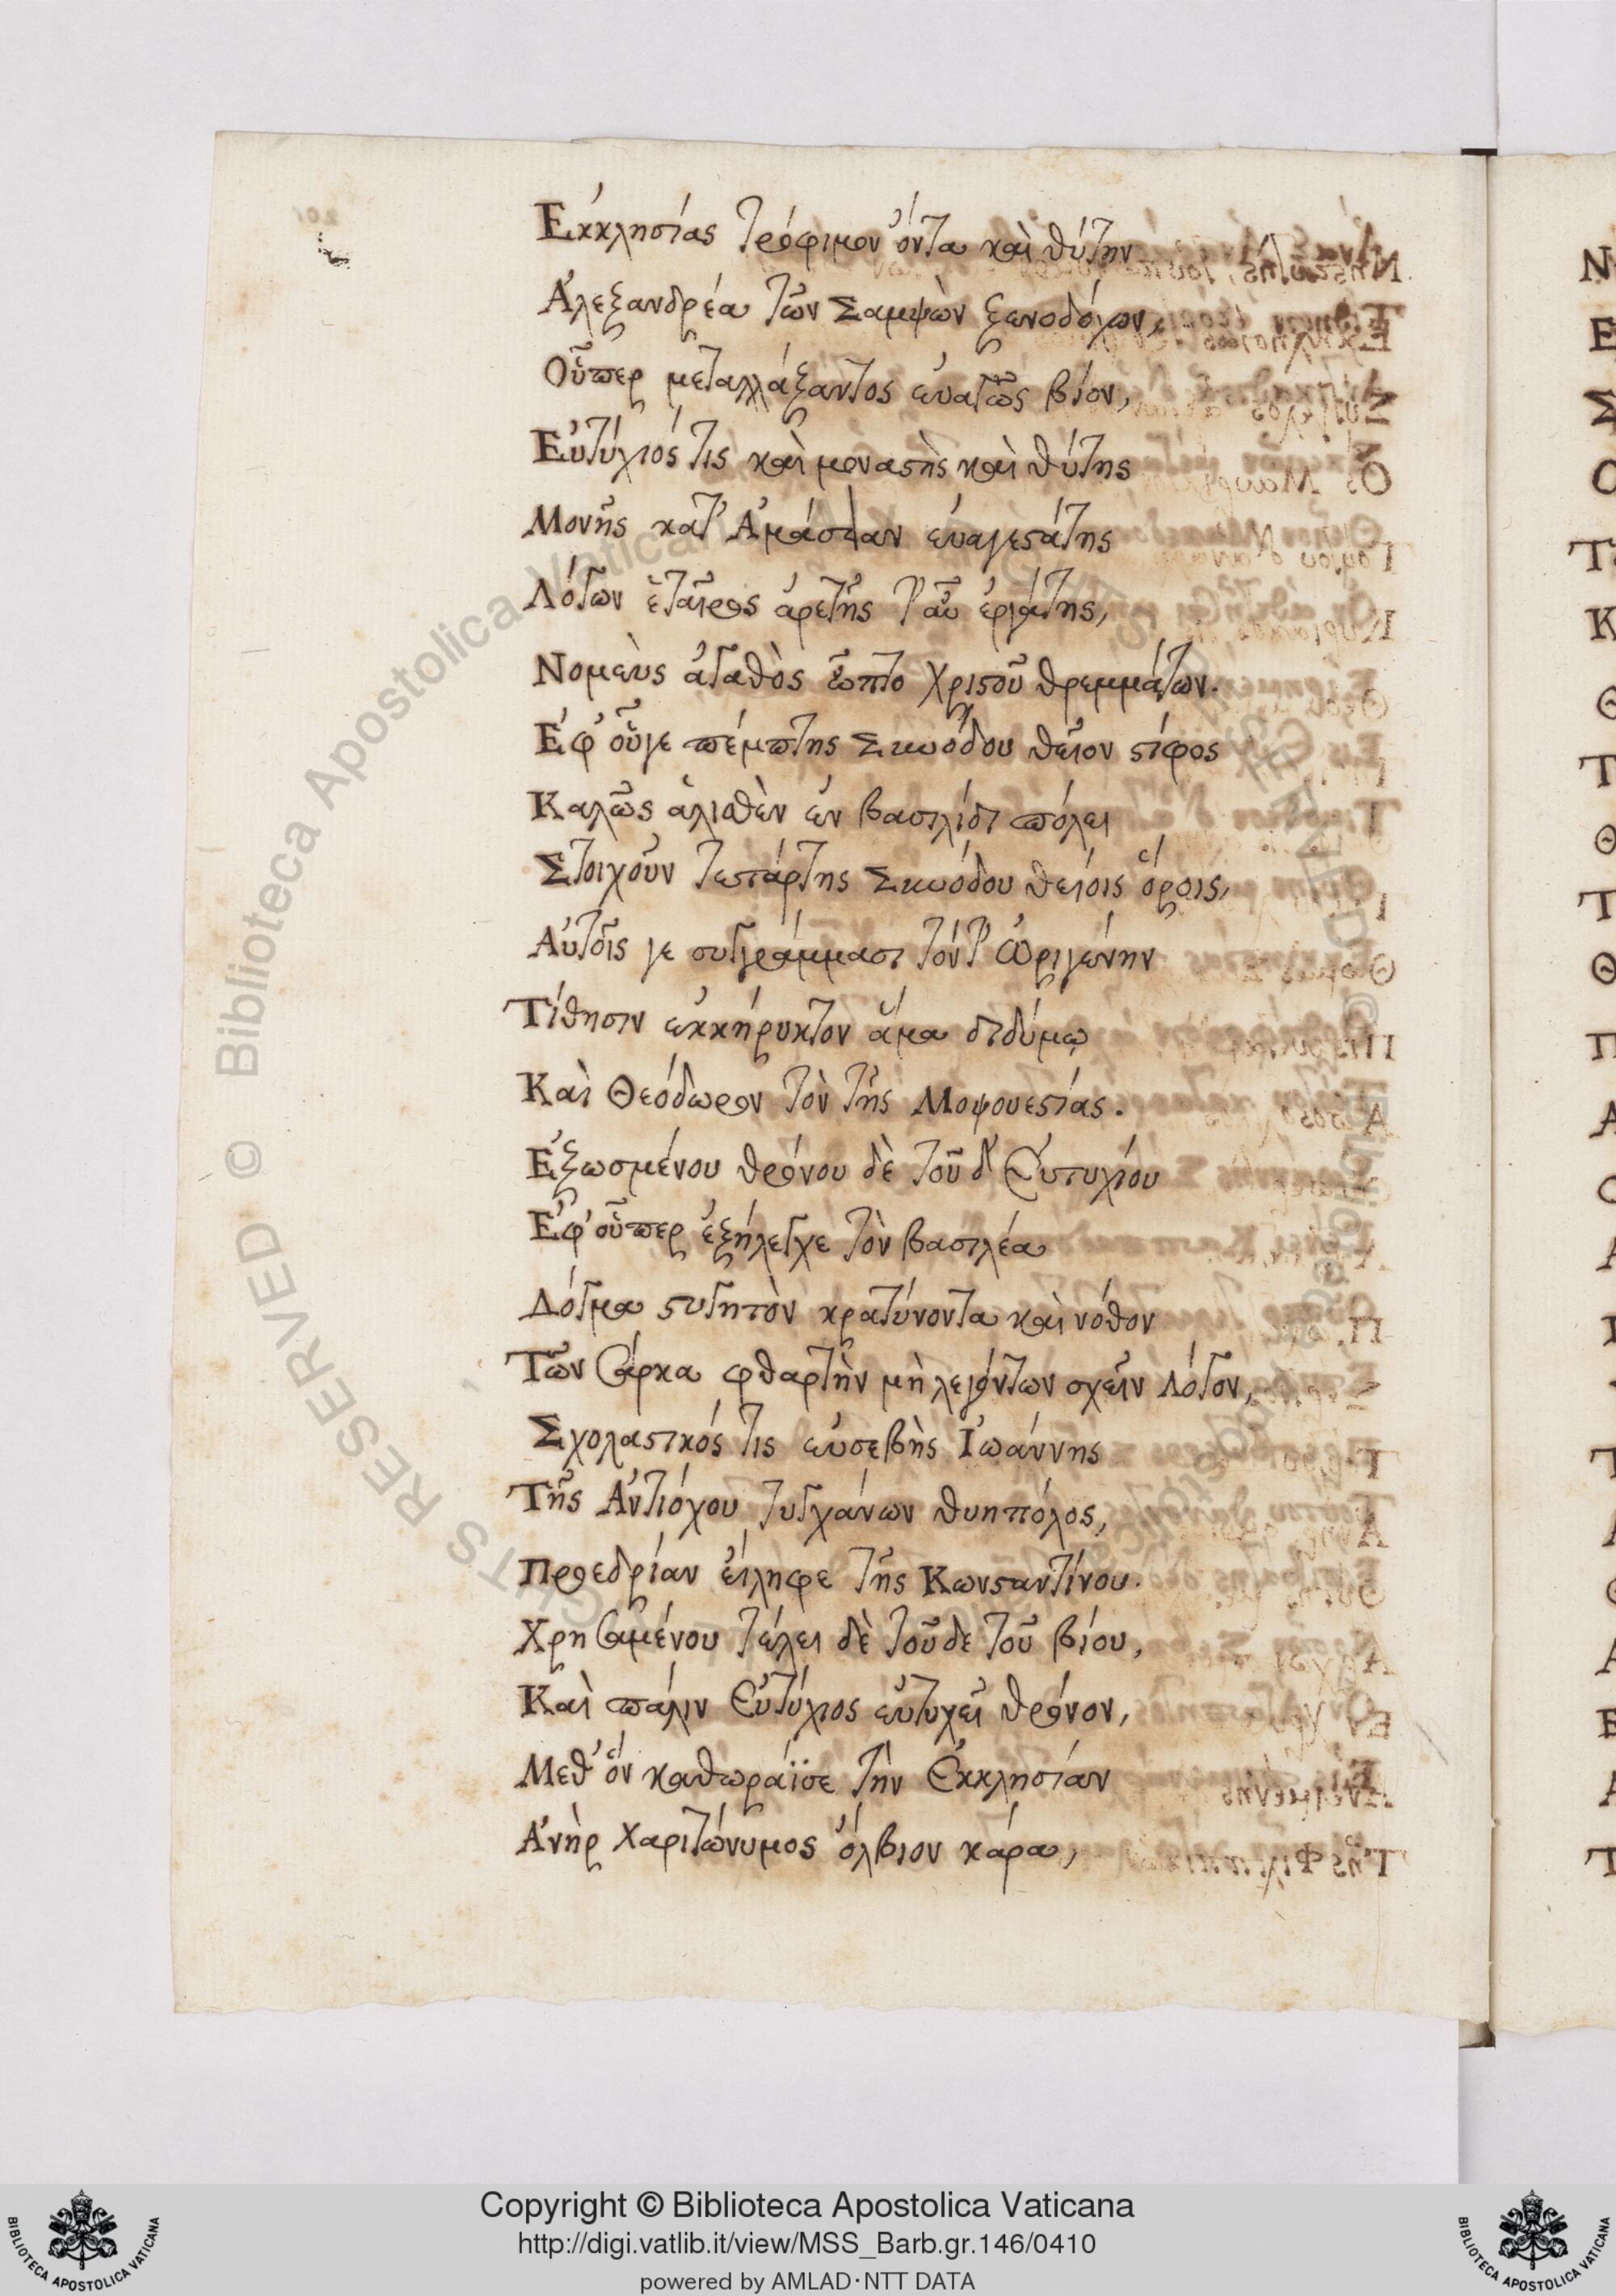 Ἐκκλησίας τρόφιμον ὄντα καὶ θύτην
Ἀλεξανδρέα τῶν Σαμψὼν ξενοδόχων,
Οὗπερ μεταλλάξαντος εὐαγῶς βίον,
Εὐτύχιός τις καὶ μοναστὴς καὶ θύτης
Μονῆς κατ' Ἀμάσειαν εὐαγεστάτης
Λόγων ἑταῖρος ἀρετῆς τ' αὖ ἐργάτης,
Νομεὺς ἀγαθὸς ὦπτο Χριστοῦ θρεμμάτων.
Ἐφ' οὗγε πέμπτης Συνόδου θεῖον στίφος
Καλῶς ἁλισθὲν ἐν βασιλίδι πόλει
Στοιχοῦν τετάρτης Συνόδου θείοις ὅροις,
Αὐτοῖς γε συγγράμμασι τόν τ' Ὠριγένην
Τίθησιν ἐκκήρυκτον ἅμα διδύμῳ
Καὶ Θεόδωρον τὸν τῆς Μοψουεστίας.
Ἐξωσμένου θρόνου δὲ τοῦ δ' Εὐτυχίου
Ἐφ' οὗπερ ἐξήλεγχε τὸν βασιλέα
Δόγμα στυγητὸν κρατύνοντα καὶ νόθον
Τῶν σάρκα φθαρτὴν μὴ λεγόντων σχεῖν Λόγον,
Σχολαστικός τις εὐσεβὴς Ἰωάννης
Τῆς Ἀντιόχου τυγχάνων θυηπόλος,
Προεδρίαν εἴληφε τῆς Κωνσταντίνου.
Χρησαμένου τέλει δὲ τοῦδε τοῦ βίου,
Καὶ πάλιν Εὐτύχιος εὐτυχεῖ θρόνον,
Μεθ' ὃν καθωράϊσε τὴν Ἐκκλησίαν
Ἀνὴρ Χαριτώνυμος ὄλβιον κάρα,
Biblioteca Apostolica Vaticana
RIGHTS RESERVED ©
Copyright © Biblioteca Apostolica Vaticana
http://digi.vatlib.it/view/MSS_Barb.gr.146/0410
powered by AMLAD·NTT DATA
BIBLIOTECA APOSTOLICA VATICANA
BIBLIOTECA APOSTOLICA VATICANA